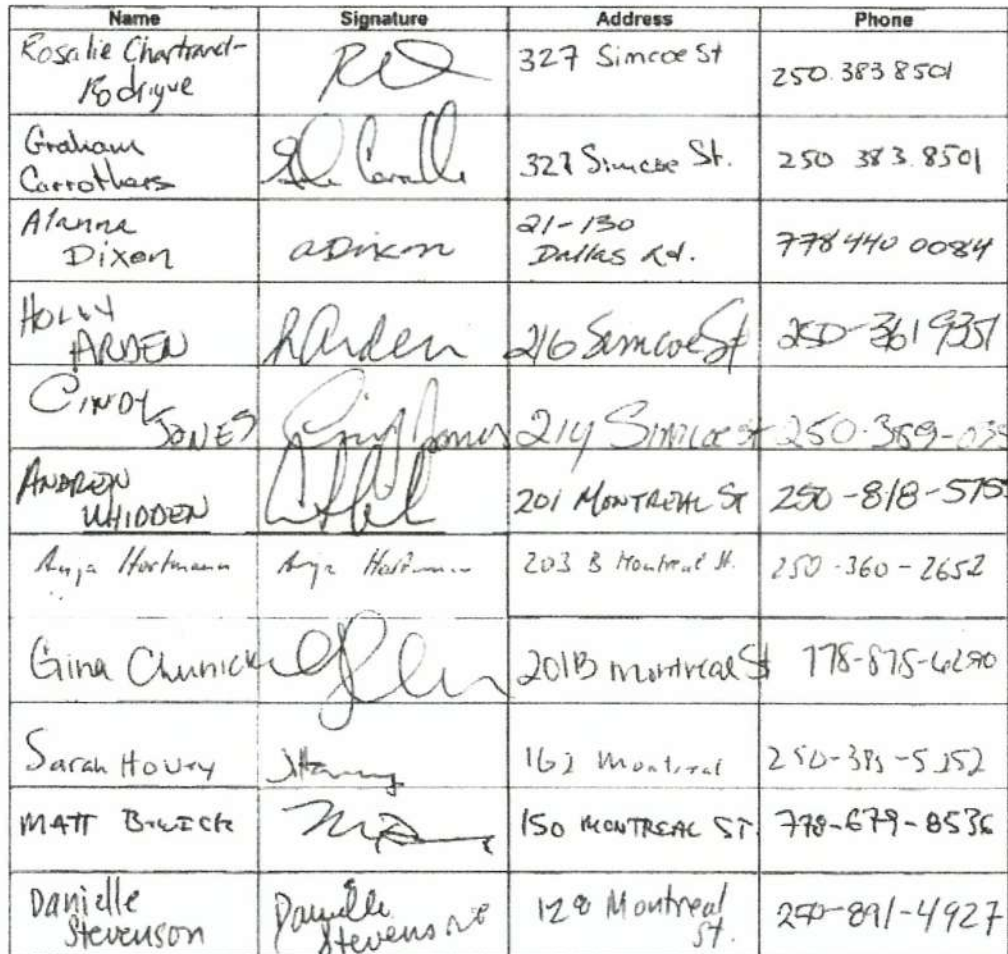 Name Signature Address Phone
Rosalie Chartrand- 327 Simcoe St
Rodrigue 250.383 8501
Graham
Carrothers 327 Simcoe St. 250 383.8501
Alanna 21-130
Dixon aDixon Dallas Rd. 778 440 0084
HOLLY
ARDEN hArden 216 Simcoe St 250-361 9351
CINDY
JONES Cindy Jones 214 Simcoe St 250-389-03
ANDREW
WHIDDEN 201 MONTREAL ST 250-818-575
Anja Hartmann Anja Hartmann 203 B Montreal St. 250-360-2652
Gina 201B Montreal St 778-875-6290
Sarah 162 Montreal 250-
MATT 150 MONTREAL ST. 778-679-8536
Danielle Danielle 128 Montreal
Stevenson Stevenson St. 250-891-4927